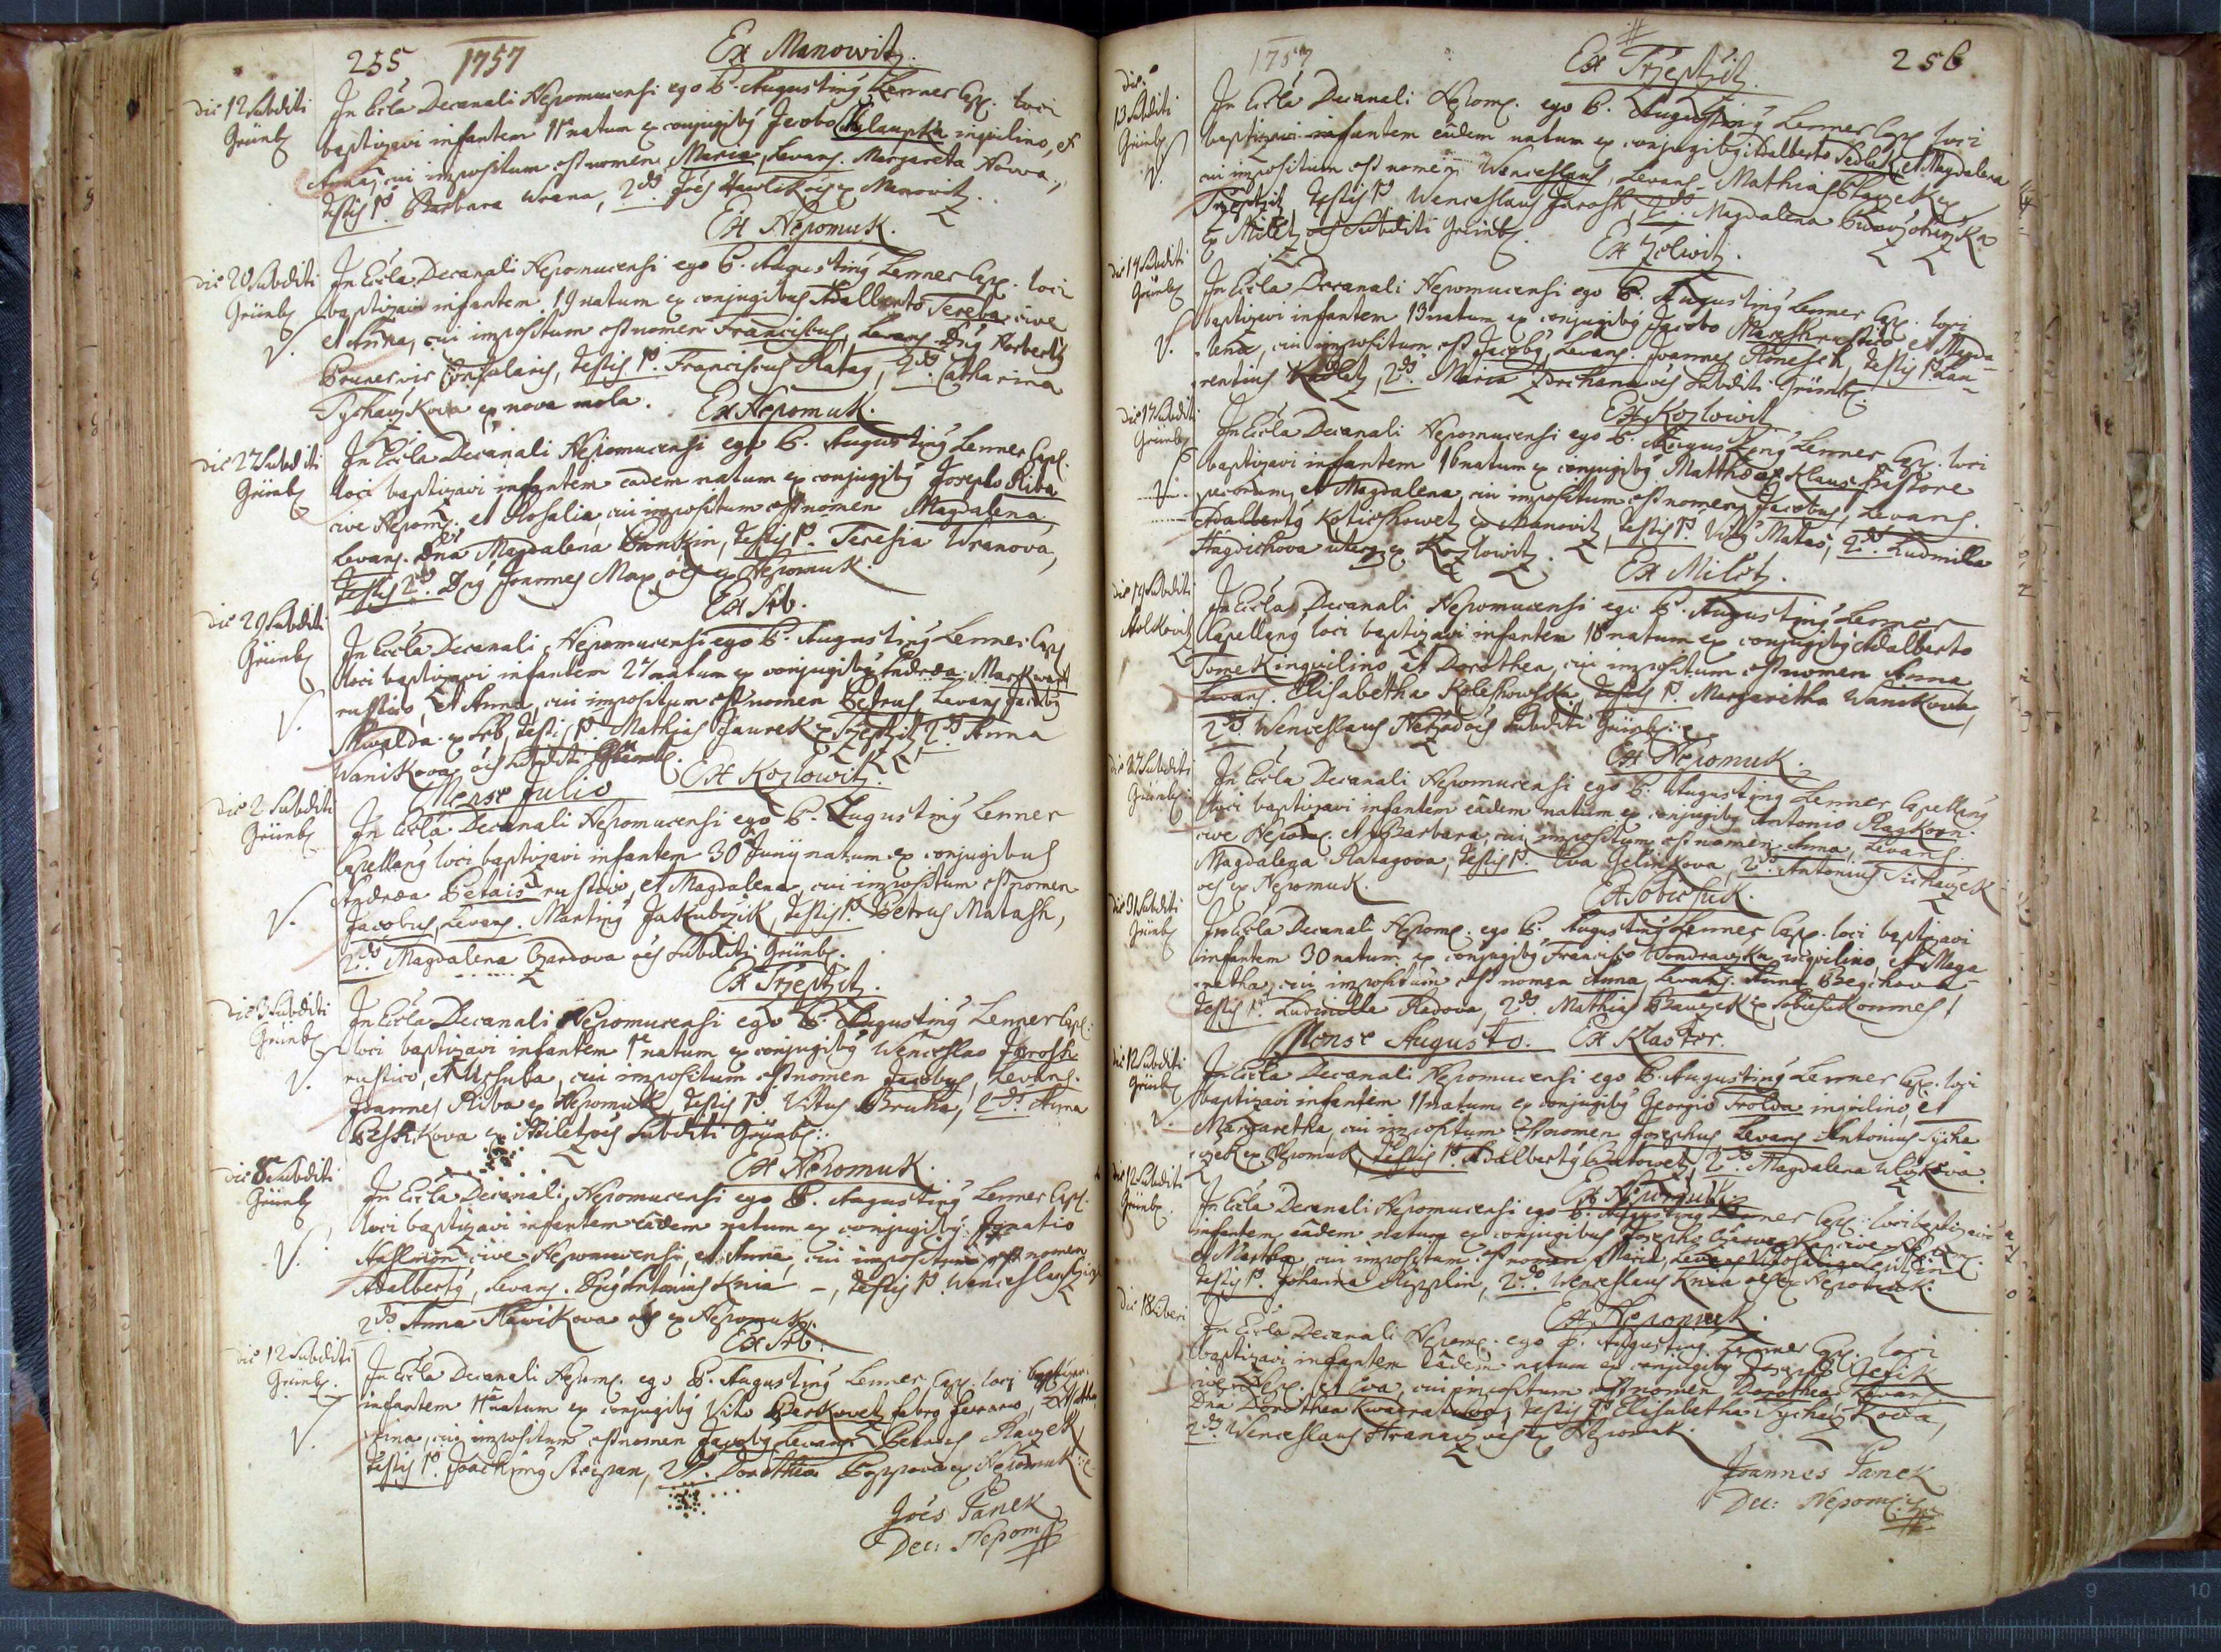 255 1757 Ex Manowitz.
die 12 Subditi
Grünb.
In Eccla Decanali Nepomucensi ego P. Augustinꝰ Lenner Cap. loci
baptizavi infantem 11 natum ex conjugibꝰ Jacobo Chylaupka inquilino, et
Anna, cui impositum est nomen Maria, Levans. Margareta Nowa,
testis 1º. Barbara Wrana, 2dº. Joes Hawlik oes ex Manowitz.
Ex Nepomuk.
die 20 Subditi
Grünb.
V.
In Eccla Decanali Nepomucensi ego P. Augustinꝰ Lenner Cap. loci
baptizavi infantem 19 natum ex conjugibus Adalberto Tereba cive
et Anna, cui impositum est nomen Franciscus, Levans Dnꝰ Norbertꝰ
Bruner vir Consularis, testis 1º. Franciscus Ratag, 2dº. Catharina
Tychaczkova ex nova mola.
Ex Nepomuk.
die 27 Subditi
Grünb.
In Eccla Decanali Nepomucensi ego P. Augustinꝰ Lenner Capl.
loci baptizavi infantem eadem natum ex conjugibꝰ Josepho Riba
cive Nepom. et Rosalia, cui impositum est nomen Magdalena.
Levans. Dna Magdalena, testis 1º. Teresia Wranova,
testis 2dº. Dnꝰ Joannes Max oes ex Nepomuk
Ex Srb.
die 29 Subditi
Grünb.
V.
In Eccla Decanali Nepomucensi ego P. Augustinꝰ Lenner Cap.
loci baptizavi infantem 27 natum ex conjugibꝰ Andrea Markwart
rustico, et Anna, cui impositum est nomen Petrus, Levans Jacobꝰ
Skwalda ex Srb, testis 1º. Mathias Jaurek ex Trzeptzitz 2dº. Anna
Wanikova, oes Subditi Grünb.
Mense Julio Ex Kozlowitz.
die 2. Subditi
Grünb.
V.
In Eccla Decanali Nepomucensi ego P. Augustinꝰ Lenner
Capellanꝰ loci baptizavi infantem 30 Junij natum ex conjugibus
Andrea Betais rustico, et Magdalena, cui impositum est nomen
Jacobus, Levans. Martinꝰ Jakubczik, testis 1º. Petrus Matash,
2dº. Magdalena Czardova oes Subditi Grünb.
Ex Trzeptzitz.
die 3 Subditi
Grünb.
V.
In Eccla Decanali Nepomucensi ego P. Augustinꝰ Lenner Cap.
loci baptizavi infantem 1 natum ex conjugibꝰ Wenceslao Jarosh
rustico, et Ursula, cui impositum est nomen Jacobus, Levans.
Joannes Riba ex Nepomuk, testis 1º. Vitus Bruha, 2dº. Anna
Peshkova ex Miletz oes Subditi Grünb.
Ex Nepomuk.
die 8 Subditi
Grünb.
V.
In Eccla Decanali Nepomucensi ego P. Augustinꝰ Lenner Capl.
loci baptizavi infantem eadem natum ex conjugibꝰ Ignatio
cive Nepomucensi, et Anna, cui impositum est nomen
Adalbertꝰ, Levans. Dnꝰ Antonius Knia -, testis 1º Wenceslaus
2dº Anna Slawikova oes ex Nepomuk.
Ex Srb.
die 12 Subditi
Grünb.
V.
In Eccla Decanali Nepom. ego P. Augustinꝰ Lenner Cap. loci baptizavi
infantem 11 natum ex conjugibꝰ Vito Berkovetz fabro ferrario, et Catha-
rina, cui impositum est nomen Jacobꝰ, Levans Petrus Kawzek
testis 1º. Joachimꝰ Stiepan, 2dº. Dorothea Poppova ex Nepomuk
Joes Panek
Dec: Nepom.
1757 Ex Trzeptzitz. 256
die
13 Subditi
Grünb.
V.
In Eccla Decanali Nepom. ego P. Augustinꝰ Lenner Cap. loci
baptizavi infantem eadem natum ex conjugibꝰ Adalberto Sedlak, et Magdalena
cui impositum est nomen Wenceslaus, Levans. Mathias Blazek ex
Trzeptzitz, testis 1º. Wenceslaus Jarosh, 2dº. Magdalena
ex Miletz oes Subditi Grünb.
Ex Zelwitz.
die 14 Subditi
Grünb.
V.
In Eccla Decanali Nepomucensi ego P. Augustinꝰ Lenner Cap. loci
baptizavi infantem 13 natum ex conjugibꝰ Jacobo Maresh rustico et Magda-
lena, cui impositum est Jacobꝰ, Levans. Joannes, testis 1º. Lau-
rentius Kadletz, 2dº. Maria oes Subditi Grünb.
Ex Kozlowitz
die 17 Subditi
Grünb.
V.
In Eccla Decanali Nepomucensi ego P. Augustinꝰ Lenner Cap. loci
baptizavi infantem 16 natum ex conjugibꝰ Mattheo Klaus Pastore
pecorum, et Magdalena, cui impositum est nomen Jacobus, Levans.
Adalbertꝰ Kotieshowetz ex Manovitz, testis 1º. Vitꝰ Mataš, 2dº. Ludmilla
Hagdichova uterq ex Kozlowitz.
Ex Miletz.
die 19 Subditi
In Eccla Decanali Nepomucensi ego P. Augustinꝰ Lenner
Capellanꝰ loci baptizavi infantem 18 natum ex conjugibꝰ Adalberto
Tomek inquilino, et Dorothea, cui impositum est nomen Anna
Levans. Elisabetha Koleshowska, testis 1º. Margaretha Wanikova,
2dº Wenceslaus oes Subditi Grünb.
Ex Nepomuk.
die 27 Subditi
Grünb.
In Eccla Decanali Nepomucensi ego P. Augustinꝰ Lenner Capellanꝰ
loci baptizavi infantem eadem natum ex conjugibꝰ Antonio
cive Nepom. et Barbara, cui impositum est nomen Anna, Levans.
Magdalena Ratagova, testis 1º. Eva Jelinkova, 2dº. Antonius Tichaczek
oes ex Nepomuk.
Ex Sobiesuk.
die 31 Subditi
Grünb.
In Eccla Decanali Nepom. ego P. Augustinꝰ Lenner Cap. loci baptizavi
infantem 30 natum ex conjugibꝰ Francisco Wondraczka inquilino, et Marga-
retha, cui impositum est nomen Anna, Levans. Anna
testis 1º. Ludmilla Radova, 2dº. Mathias ex Sobiesuk omnes!
Mense Augusto. Ex Klaster.
die 12 Subditi
Grünb.
V.
In Eccla Decanali Nepomucensi ego P. Augustinꝰ Lenner Cap. loci
baptizavi infantem 11 natum ex conjugibꝰ Georgio Trolda inquilino, et
Margaretha, cui impositum est nomen Josephus Levans Antonius Ticha-
czek ex Nepomuk, testis 1º. Adalbertꝰ, 2dº. Magdalena Wlczkova.
Ex Nepomuk.
die 12 Subditi
Grünb.
In Eccla Decanali Nepomucensi ego P. Augustinꝰ Lenner Cap. loci baptizavi
infantem eadem natum ex conjugibus Josepho Czerwenka cive Nepom.
et Martha, cui impositum est nomen Maria, Levans
testis 1º. Johanna, 2dº. Wenceslaus Knia oes ex Nepomuk.
Ex Nepomuk.
die 18 Liberi
In Eccla Decanali Nepom. ego P. Augustinꝰ Lenner Cap. loci
baptizavi infantem eadem natum ex conjugibꝰ Josepho Gesik
cive Nep. et Eva, cui impositum est nomen Dorothea, Levans
Dna Dorothea, testis 1º Elisabetha Tychaczkova,
2dº Wenceslaus oes ex Nepomuk.
Joannes Panek
Dec: Nepom.
9 10